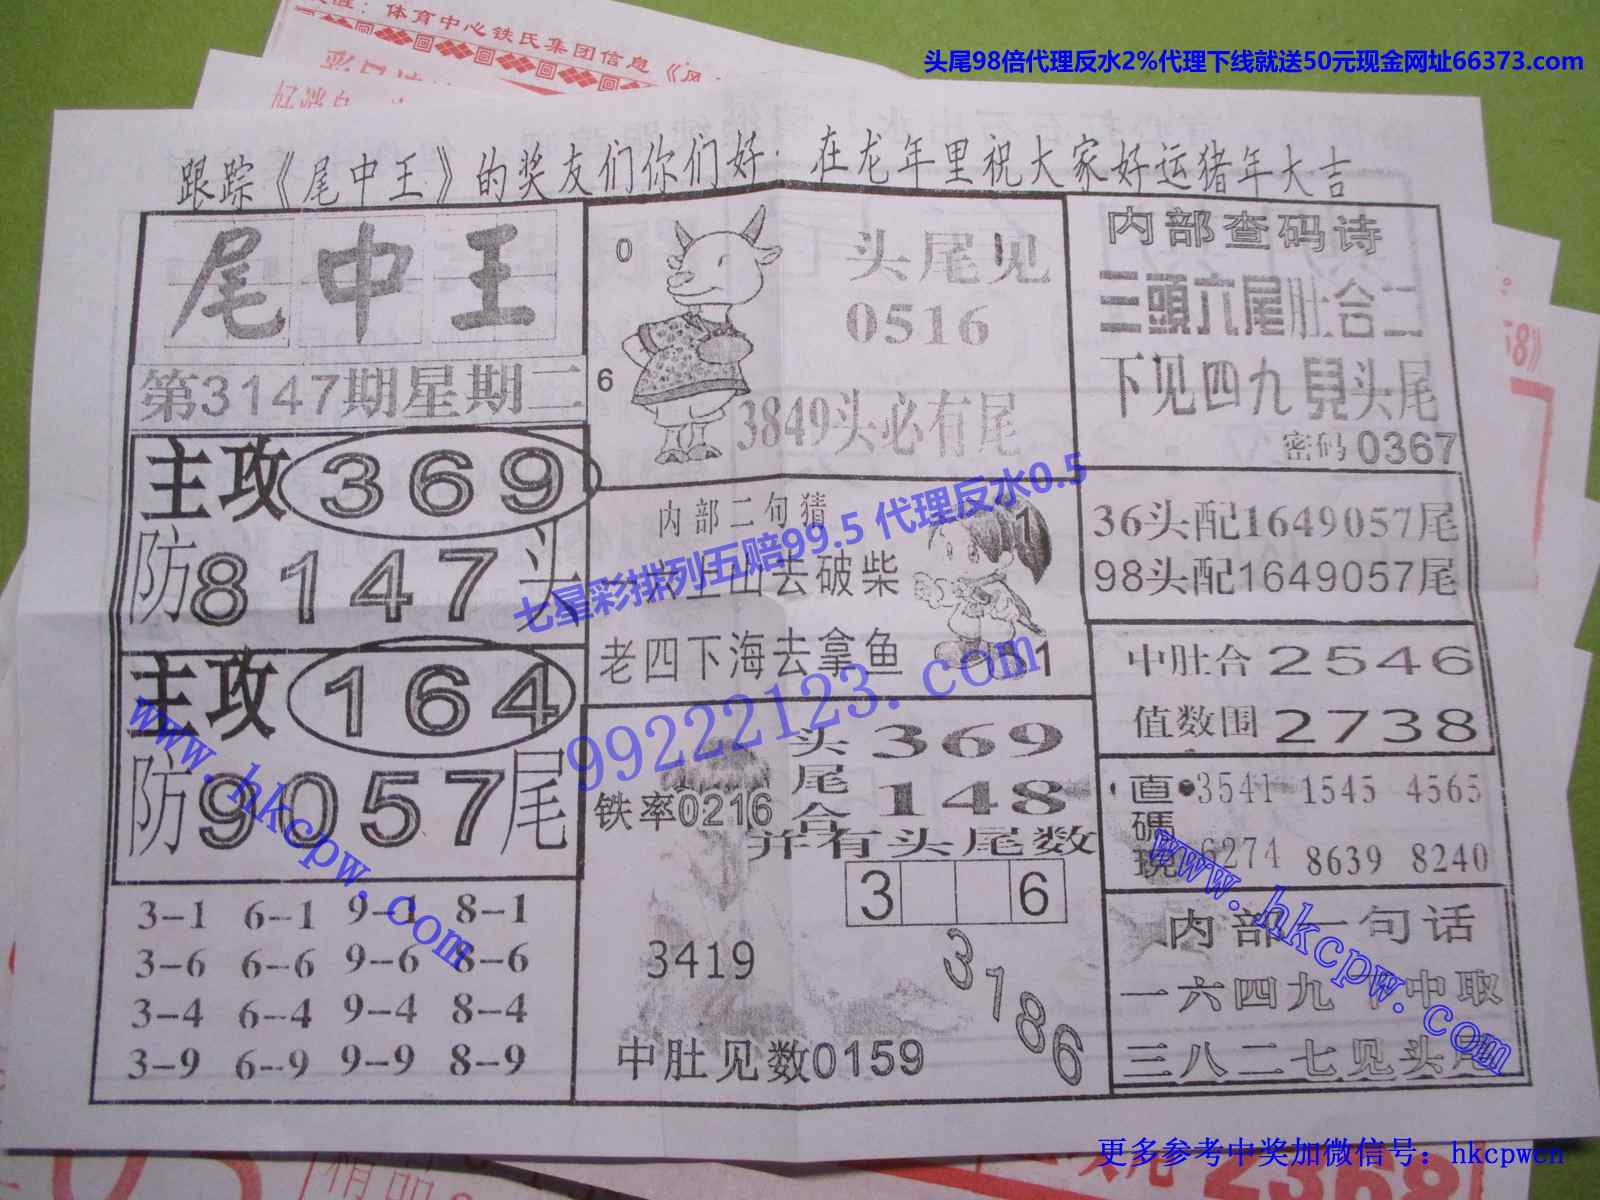 体育中心铁氏集团信息《风
头尾98倍代理反水2%代理下线就送50元现金网址66373.com
跟踪《尾中王》的奖友们你们好·在龙年里祝大家好运猪年大吉
尾中王
第3147期星期二
主攻369
防8147头
主攻164
防9057尾
3-1 6-1 9-1 8-1
3-6 6-6 9-6 8-6
3-4 6-4 9-4 8-4
3-9 6-9 9-9 8-9
0
6
头尾见
0516
3849头必有尾
内部二句猜
上山去破柴
老四下海去拿鱼
1
七星彩排列五赔99.5 代理反水0.5
99222123.com
铁率0216
头369
尾
合148
并有头尾数
3 6
3419
31786
中肚见数0159
内部查码诗
三頭六尾肚合二
下见四九見头尾
密码0367
36头配1649057尾
98头配1649057尾
中肚合2546
值数围2738
直碼现
3541 1545 4565
6274 8639 8240
内部一句话
一六四九 中取
三八二七见头尾
www.hkcpw.com
www.hkcpw.com
更多参考中奖加微信号：hkcpwcn
2368